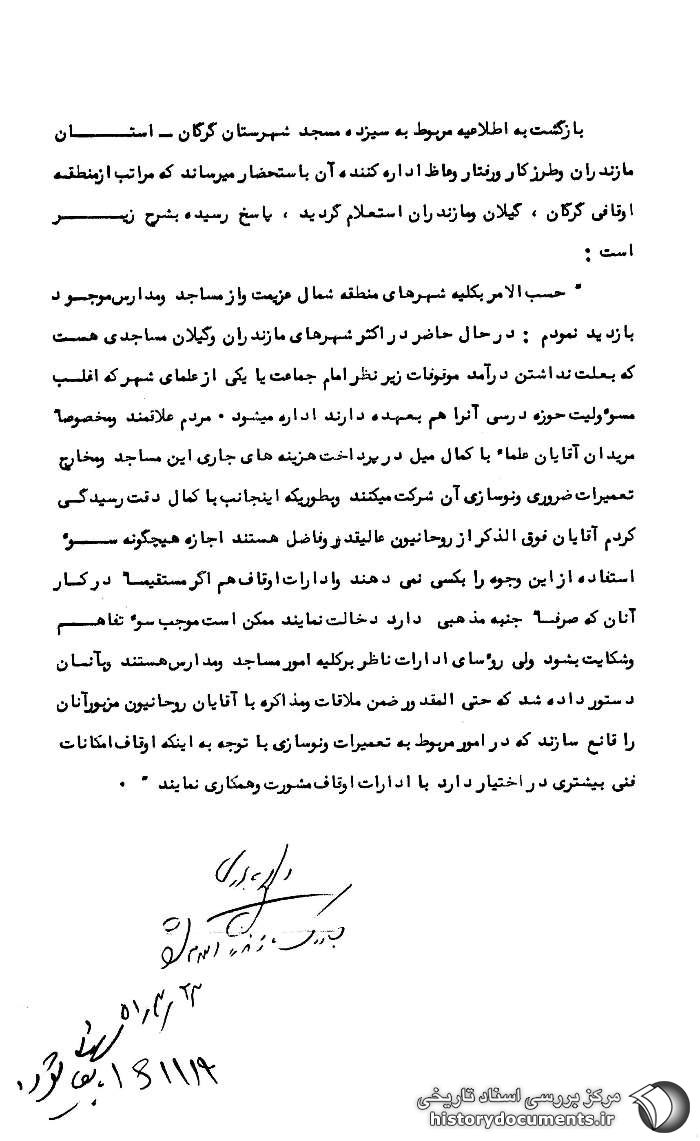 بازگشت به اطلاعیه مربوط به سیزده مسجد شهرستان گرگان ــ استـــــــان
مازندران وطرز کار ورفتار وعاظ اداره کننده آن باستحضار میرساند که مراتب ازمنطقـه
اوقافی گرگان ، گیلان ومازندران استعلام گردید ، پاسخ رسیده بشرح زیــــر
است :
" حسب الامر بکلیه شهرهای منطقه شمال عزیمت واز مساجد ومدارس موجـود
بازدید نمودم : در حال حاضر در اکثر شهرهای مازندران وگیلان مساجدی هست
که بعلت نداشتن درآمد موقوفات زیر نظر امام جماعت یا یکی از علمای شهر که اغلـب
مسوءولیت حوزه درسی آنرا هم بعهده دارند اداره میشود . مردم علاقمند ومخصوصا"
مریدان آقایان علماء با کمال میل در پرداخت هزینه های جاری این مساجد ومخارج
تعمیرات ضروری ونوسازی آن شرکت میکنند وبطوریکه اینجانب با کمال دقت رسیدگـی
کردم آقایان فوق الذکر از روحانیون عالیقدر وفاضل هستند اجازه هیچگونه ســـوء
استفاده از این وجوه را بکسی نمی دهند وادارات اوقاف هم اگر مستقیمـا" در کـار
آنان که صرفـا" جنبه مذهبی دارد دخالت نمایند ممکن است موجب سوء تفاهــم
وشکایت بشود ولی روءسای ادارات ناظر برکلیه امور مساجد ومدارس هستند وبآنسان
دستور داده شد که حتی المقدور ضمن ملاقات ومذاکره با آقایان روحانیون مزبورآنان
را قانـع سازند که در امور مربوط به تعمیرات ونوسازی با توجه به اینکه اوقاف امکانات
فنی بیشتری در اختیار دارد با ادارات اوقاف مشورت وهمکاری نمایند " .
مرکز بررسی اسناد تاریخی
historydocuments.ir